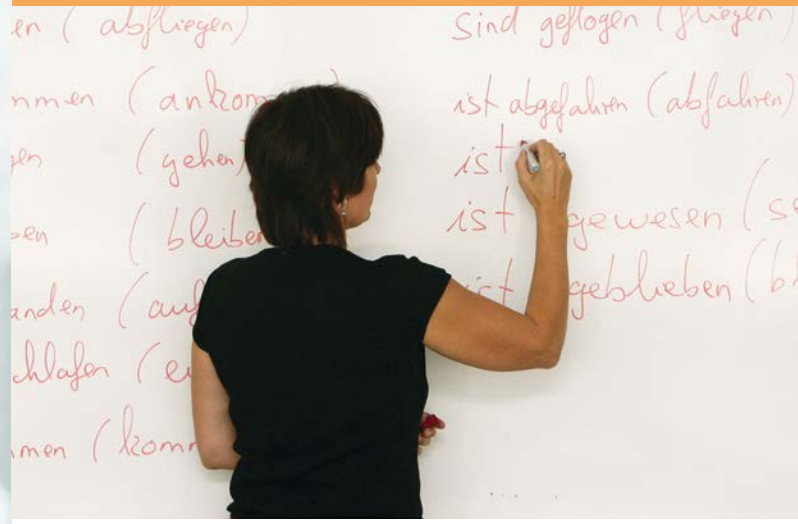 en (abfliegen)
mmen (ankom
gen (gehen)
ben (bleiben
anden (auf
chlafen (ei
men (komm
sind geflogen (fliegen)
ist abgefahren (abfahren)
ist
ist gewesen (se
ist geblieben (bl